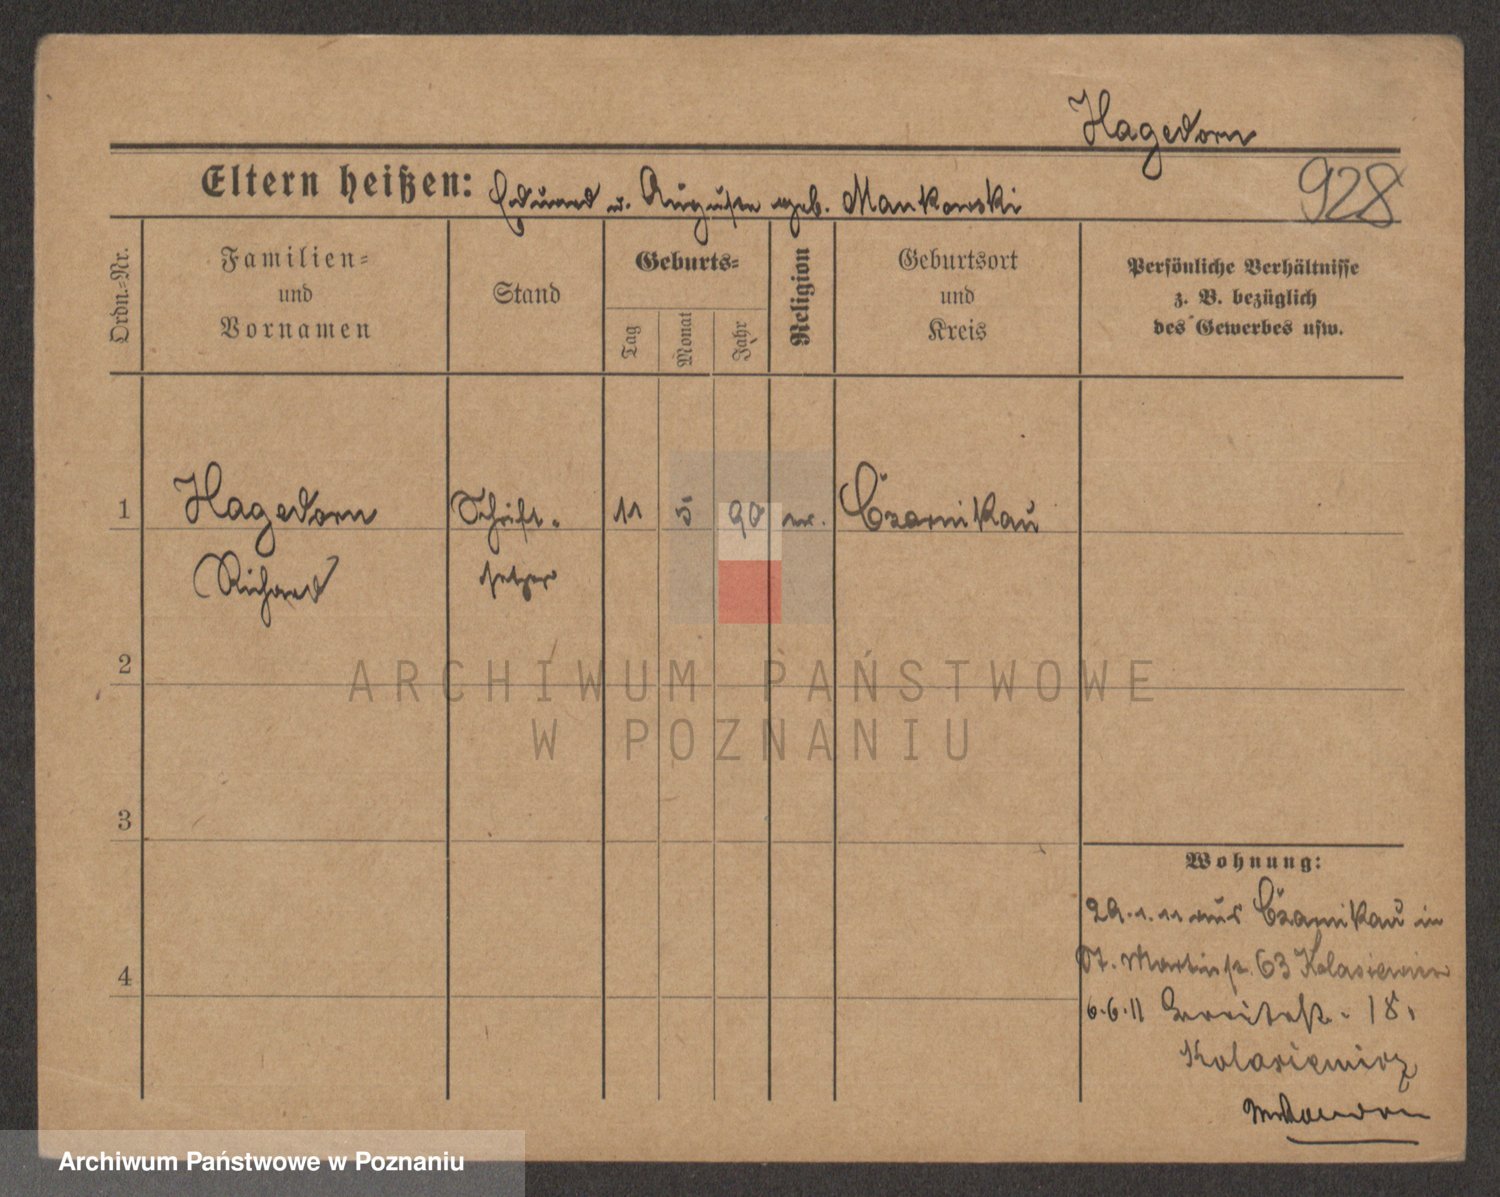 Hagedorn
Eltern heißen: Eduard u. Auguste geb. Mankowski
928
Ordn.=Nr.
Familien=
und
Vornamen
Stand
Geburts=
Tag
Monat
Jahr
Religion
Geburtsort
und
Kreis
Persönliche Verhältnisse
z. B. bezüglich
des Gewerbes usw.
1 Hagedorn Schrift- 11 5 90 ev. Czarnikau
Richard setzer
2
ARCHIWUM PAŃSTWOWE
W POZNANIU
3
Wohnung:
29.1.11 aus Czarnikau in
St. Martinstr. 63 Kolasiewicz
4
6.6.11 18.
Kolasiewicz
Archiwum Państwowe w Poznaniu